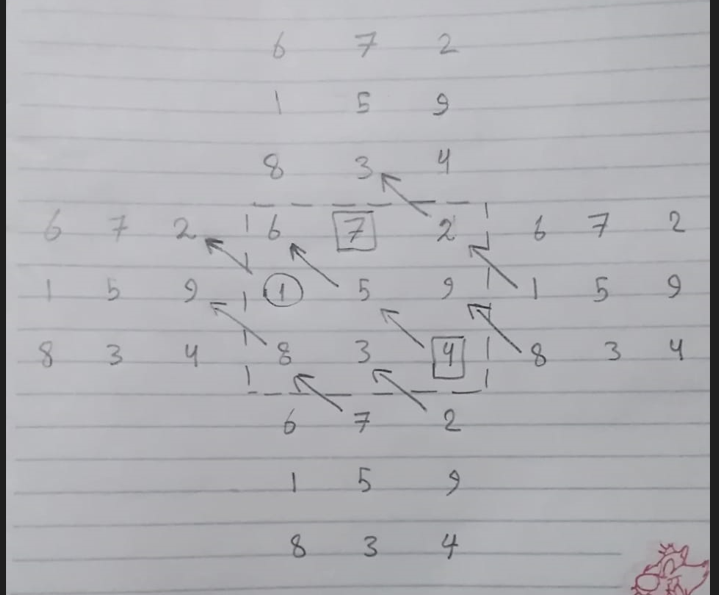 6 7 2
1 5 9
8 3 4
6 7 2 6 7 2 6 7 2
1 5 9 1 5 9 1 5 9
8 3 4 8 3 4 8 3 4
6 7 2
1 5 9
8 3 4